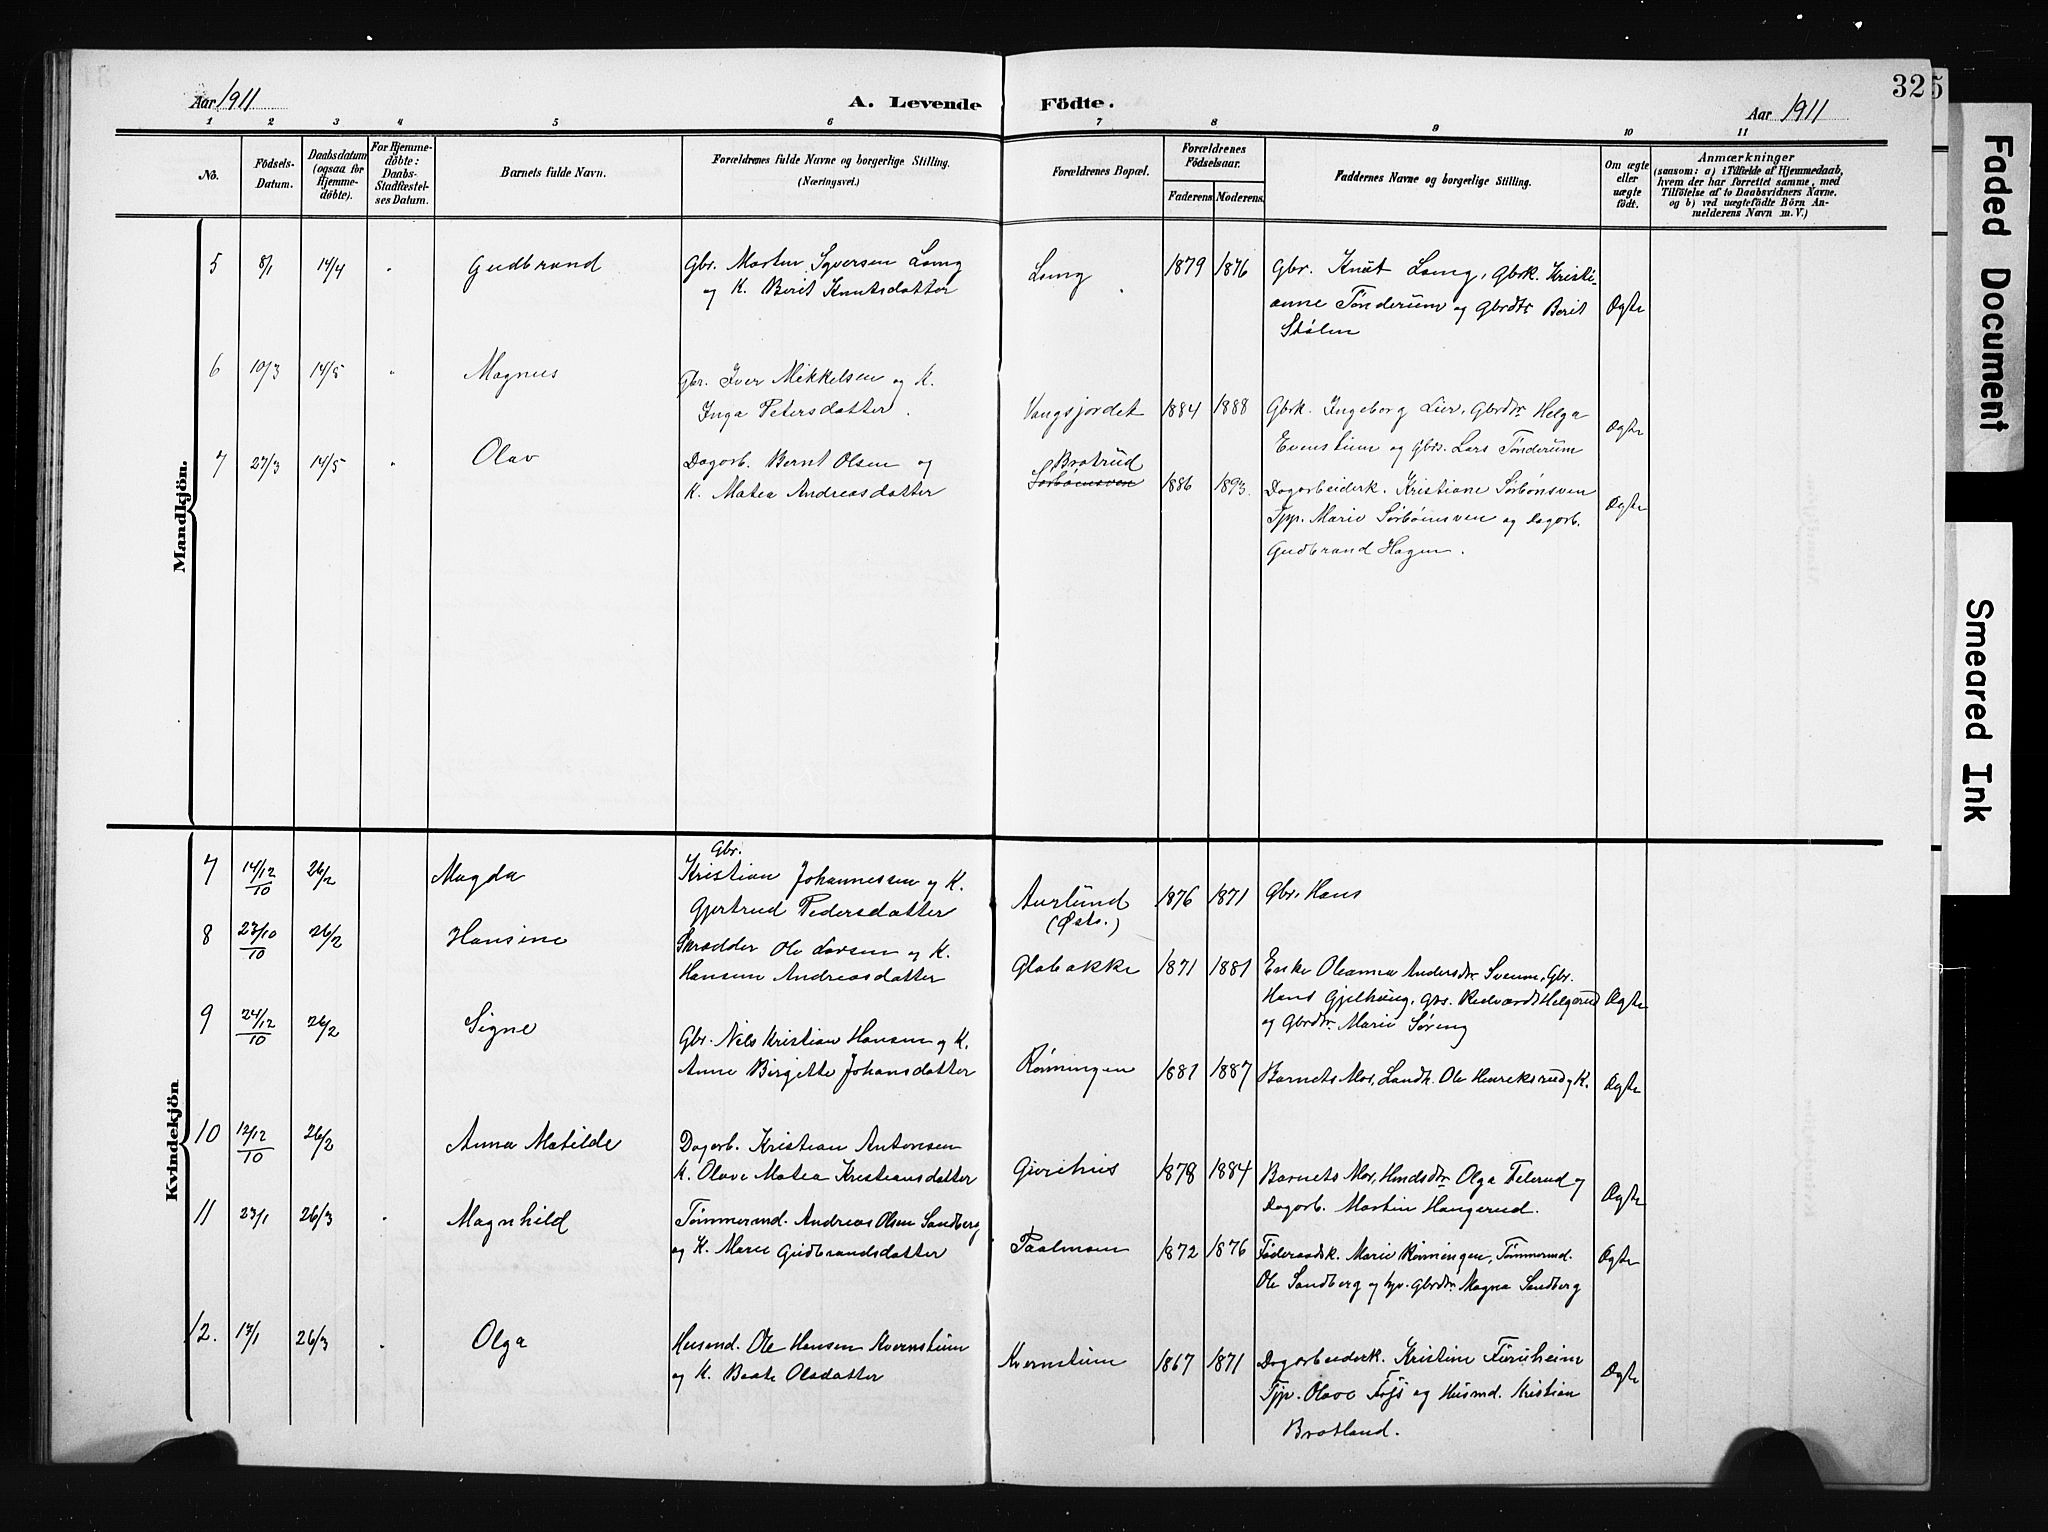 Aar 1911
A. Levende Födte.
Aar 1911
325
1 2 3 4 5 6 7 8 9 10 11
No.
Födsels-
Datum.
Daabsdatum
(ogsaa for
Hjemme-
döbte).
For Hjemme-
döbte:
Daabs-
Stadfæstel-
ses Datum.
Barnets fulde Navn.
Forældrenes fulde Navne og borgerlige Stilling.
(Næringsvei.)
Forældrenes Bopæl.
Forældrenes
Födselsaar.
Faderens
Moderens.
Faddernes Navne og borgerlige Stilling.
Om ægte
eller
uægte
födt.
Anmærkninger
(saasom: a) i Tilfælde af Hjemmedaab,
hvem der har forrettet samme, med
Tilföielse af to Daabsvidners Navne.
og b) ved uægtefödte Börn An-
melderens Navn m. V.)
Mandkjön.
5 8/1 14/4 " Gudbrand
Gbr. Martin Syversen Læng
og K. Berit Knutsdatter
Læng 1879 1876
Gbr. Knut Læng, Gbrk. Kristi-
anne Tønderum og Gbrdtr Berit
Stølen
Ægte
6 10/3 14/5 " Magnus
Gbr. Iver Mikkelsen og K.
Inga Petersdatter.
Vangsjordet 1884 1888
Gbrk. Ingeborg Lier, Gbrdtr Helga
Evenstuen og Gbrs. Lars Tønderum
Ægte
7 27/3 14/5 " Olav
Dagarb. Bernt Olsen og
K. Matea Andreasdatter
Bratrud
Sørbønsven 1886 1893.
Dagarbeiderk. Kristiane Sørbønsven
Tjp. Marie Sørbønsven og Dagarb.
Gudbrand Hagen.
Ægte
Kvindekjön
7 14/12/10 26/2 Magda
Gbr.
Kristian Johannessen og K.
Gjertrud Pedersdatter
Aurlund
(Østs.)
1876 1871
Gbr. Hans
8 27/10/10 26/2 Hansine
Skrædder Ole Larsen og K.
Hansine Andreasdatter
Glæbakke 1871 1881
Enke Oleanna Andersdtr Sveum, Gbr.
Hans Gjelhaug, Gbs. Redvardt Helgerud
og Gbrdtr. Marie Søreng
Ægte
9 24/12/10 26/2 Signe
Gbr. Nils Kristian Hansen og K.
Anne Birgitte Johansdatter
Rønningen 1881 1887
Barnets Mor, Landh. Ole Henriksrud og K.
Ægte
10 12/12/10 26/2 Anna Matilde
Dagarb. Kristian Antonsen
K. Olave Matea Kristiansdatter
Gurihus 1878 1884
Barnets Mor, Hmdsdtr Olga Felerud og
Dagarb. Martin Haugerud.
Ægte
11 27/1 26/3 " Magnhild
Tømmermd. Andreas Olsen Sandberg
og K. Marie Gudbrandsdatter
Paalmoen 1872 1876
Føderaadsk. Marie Rønningen, Tømmermd.
Ole Sandberg og tjp. Gbrdtr. Magna Sandberg
Ægte
12. 17/1 26/3 " Olga
Husmd. Ole Hansen Kvernstuen
og K. Beate Olsdatter
Kvernstuen 1867 1871
Dagarbeiderk. Kristine Furuheim
Tjp. Olave Fojs og Husmd. Kristian
Bratland.
Ægte
Faded Document
Smeared Ink